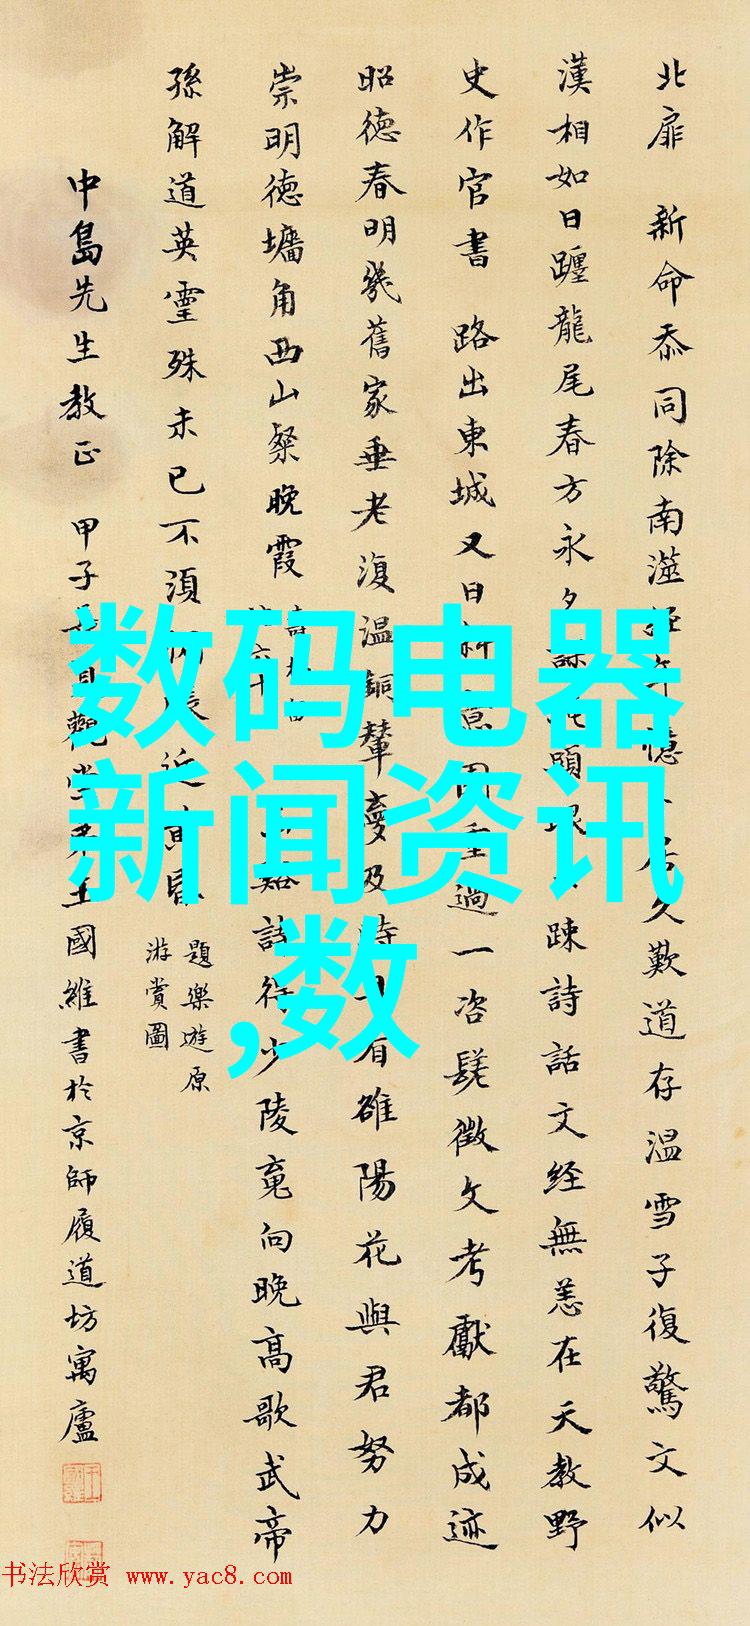 北扉 新命忝同除南
久歎道存温雪子復驚文似
漢相如日躔龍尾春方永夕
踈詩話文経無恙在天教野
史作官書 路出東城又日斜
重過一咨嗟徵文考獻都成迹
昭德春明幾舊家垂老復温銅輦夢及時
有雒陽花與君努力
崇明德墻角西山粲晚霞
詩得少陵竟向晚高歌武帝
孫解道英靈殊未已不須
近
題樂遊原
游賞圖
中島先生教正 甲子
觀堂弟王國維書於京師履道坊寓廬
数码电器
新闻资讯
,数
书法欣赏 www.yac8.com